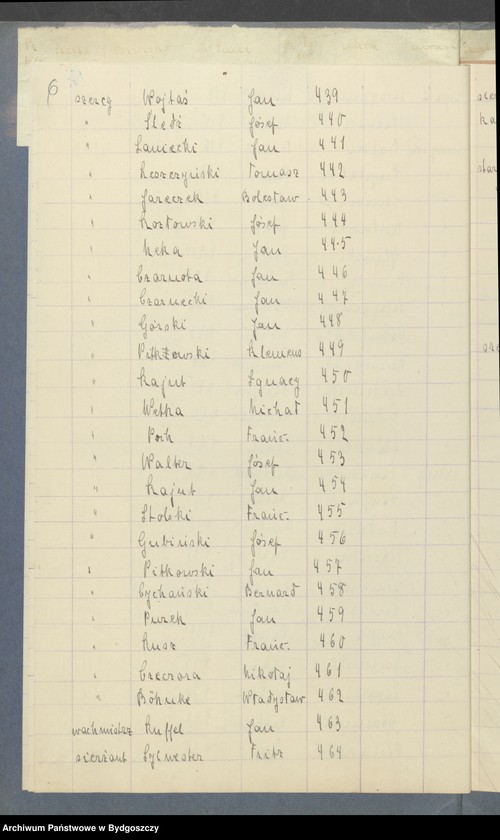 6
szereg Wojtaś Jan 439
" Śledź Józef 440
" Łaniecki Jan 441
" Leszczyński Tomasz 442
" Jareczek Bolesław 443
" Kozłowski Józef 444
" Jan 445
" Czarnota Jan 446
" Czarnecki Jan 447
" Górski Jan 448
" Klemens 449
" Kajut Ignacy 450
" Wetka Michał 451
" Poch Franc. 452
" Walter Józef 453
" Kajut Jan 454
" Stolski Franc. 455
" Gubiński Józef 456
" Pitkowski Jan 457
" Cychański Bernard 458
" Purek Jan 459
" Kusz Franc. 460
" Czeczora Mikołaj 461
" Böhnke Władysław 462
wachmistrz Kuffel Jan 463
sierżant Sylwester Fritz 464
Archiwum Państwowe w Bydgoszczy